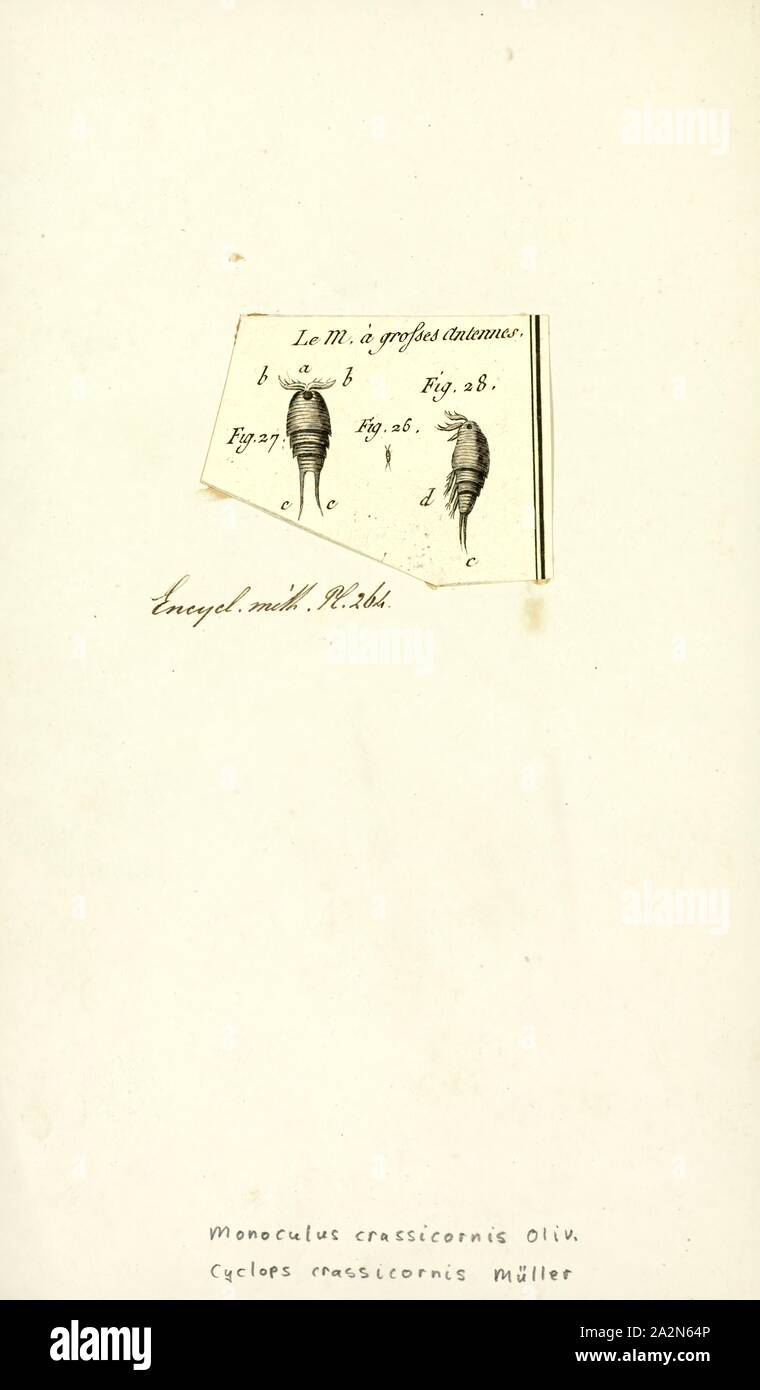 Le M. à grosses Antennes.
a
b b
Fig. 28.
Fig. 27.
Fig. 26.
c c
d
c
Encycl. méth. Pl. 264.
Monoculus crassicornis Oliv.
Cyclops crassicornis Müller
alamy
alamy
alamy
alamy
Image ID: 2A2N64P
www.alamy.com